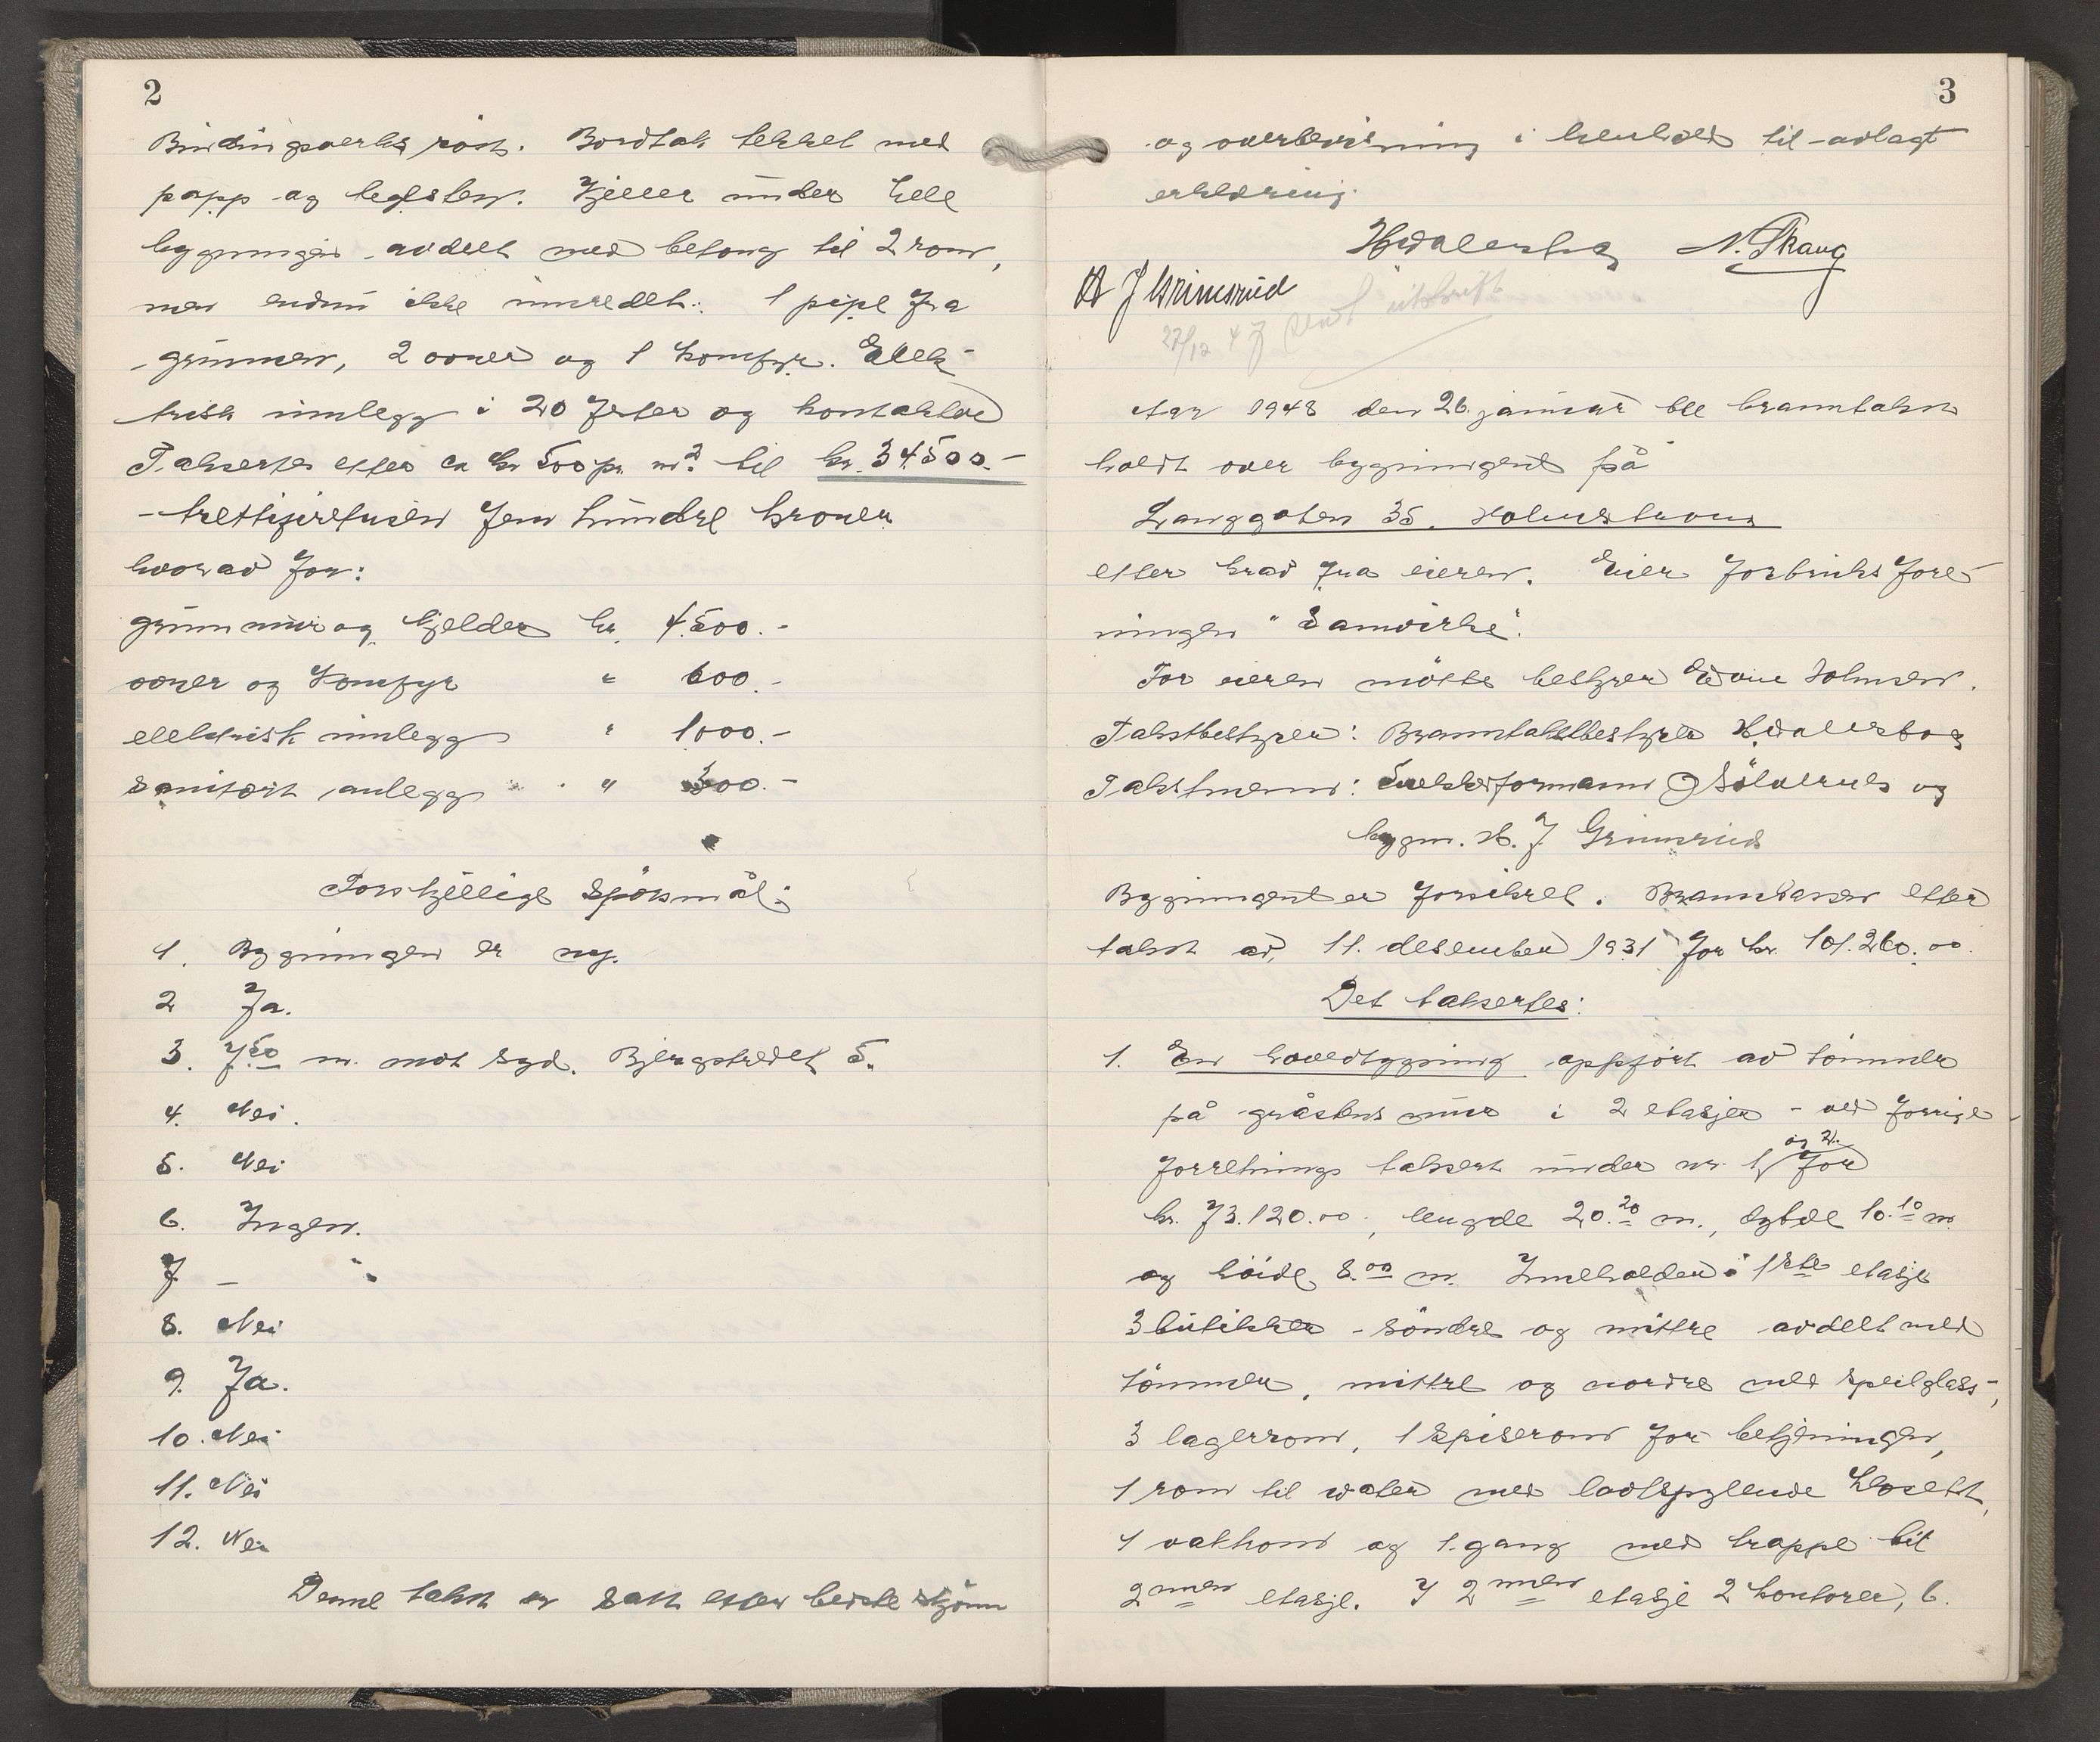 2
Bindingsverks røst. Bordtak tekket med
papp og teglsten. Kjeller under hele
bygningen avdelt med betong til 2 rom,
men endnu ikke innredet. 1 pipe fra
grunnen, 2 ovner og 1 komfyr. Elek-
trisk innlegg i 20 fester og kontakter
Taksertes efter ca kr 500 pr. m² til kr. 34500.-
- trettifiretusen fem hundre kroner
hvorav for:
grunnmur og kjelder kr. 4.500.-
ovner og komfyr " 600.-
elektrisk innlegg " 1000.-
sanitært anlegg " 300.-
Forskjellige spörsmål:
1. Bygningen er ny.
2 Ja.
3. 7.50 m. mot syd. Bjergstredet 5.
4. Nei.
5. Nei
6. Ingen.
7 - "
8. Nei
9. Ja.
10. Nei
11. Nei
12. Nei
Denne takst er satt efter beste skjönn
3
og overbevisning i henhold til avlagt
erklæring.
N. Skaug
H J Grimsrud
27/12 47 sendt utskrift
Aar 1948 den 26. januar ble branntakst
holdt over bygningene på
Langgaten 35. Holmestrand
efter krav fra eieren. Eier Forbruksfore-
ningen "Samvirke".
For eieren møtte bestyrer Holmsen.
Takstbestyrer: Branntakstbestyrer
Takstmenn: Snekkerformann O Sölverud og
bygm. H. J Grimsrud
Bygningene er forsikret. Brannkassen efter
takst av 11. desember 1931 for kr. 101.260.00
Det taksertes:
1. En hovedbygning oppfört av tömmer
på gråstens mur i 2 etasjer - ved forrige
forretnings taksert under nr. 1 og 2. for
kr. 73.120.00, lengde 20.20 m., dybde 10.10 m
og höide 8.00 m. Inneholder i 1ste etasje
3 butikker - söndre og mittre avdelt med
tömmer, mittre og nordre med speilglass -,
3 lagerrom, 1 spiserom for betjeningen,
1 rom til vater med lodtspylende klosett,
1 vaktrom og 1. gang med trappe til
2nen etasje. I 2nen etasje 2 kontorer, 6.